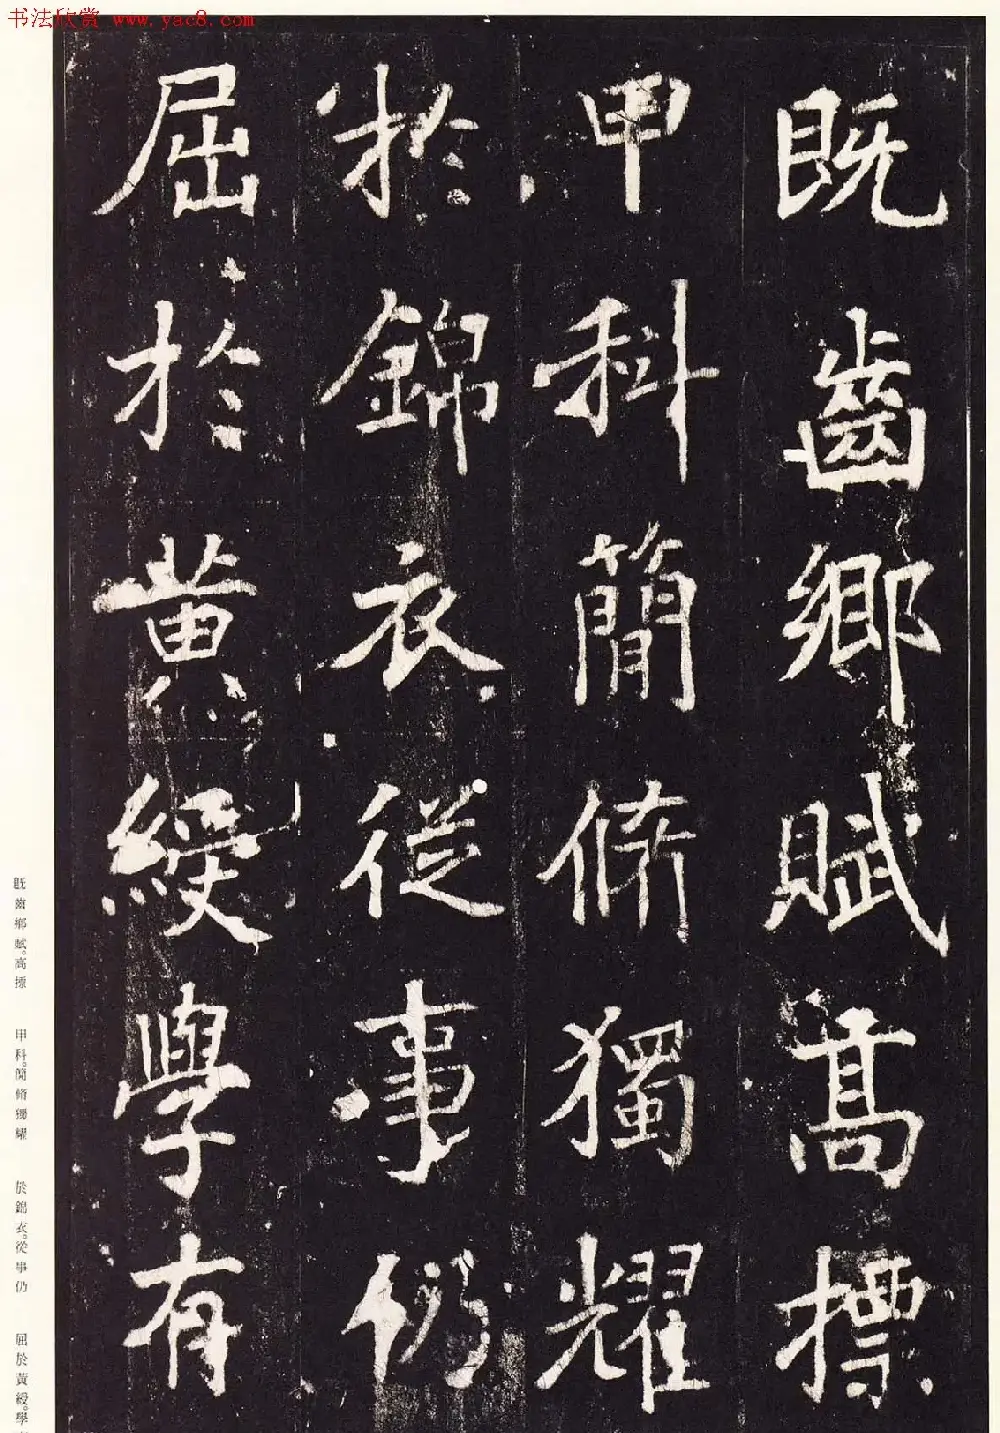 书法欣赏 www.yac8.com
既齒鄉賦高標
甲科簡脩獨耀
於錦衣從事仍
屈於黃綬學有
既齒鄉賦。高標
甲科。簡脩獨耀
於錦衣。從事仍
屈於黃綬。學